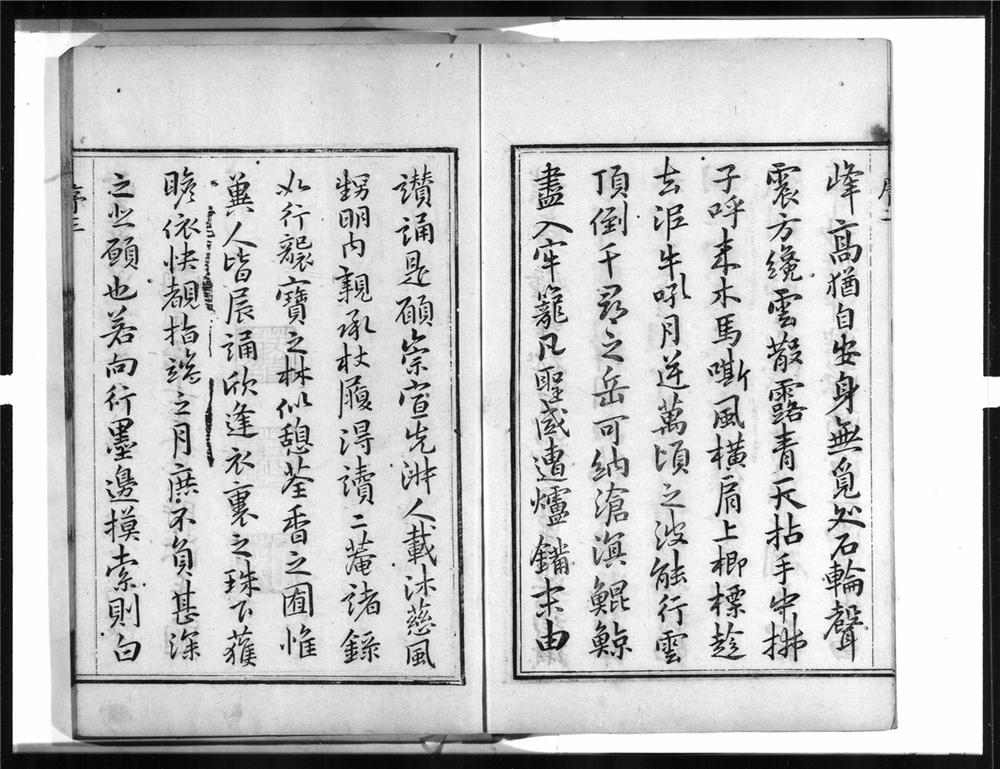 序二
峰高猶自安身無覓处石輪聲
震方纔雲散露青天拈手中拂
子呼来木馬嘶風横肩上楖㯶趂
去泥牛吼月逆萬頃之波能行雲
頂倒千尋之岳可納滄溟鯤鯨
盡入牢籠凡聖咸遭爐鞴末由
讃誦是願崇宣先游人載沐慈風
甥明内親承杖履淂讀二菴諸錄
如行寶之林似憩荃香之囿惟
兾人皆展誦欣逢衣裏之珠下獲
瞻依快覩指端之月庶不負甚深
之悲願也若向行墨邊摸索則白
序三